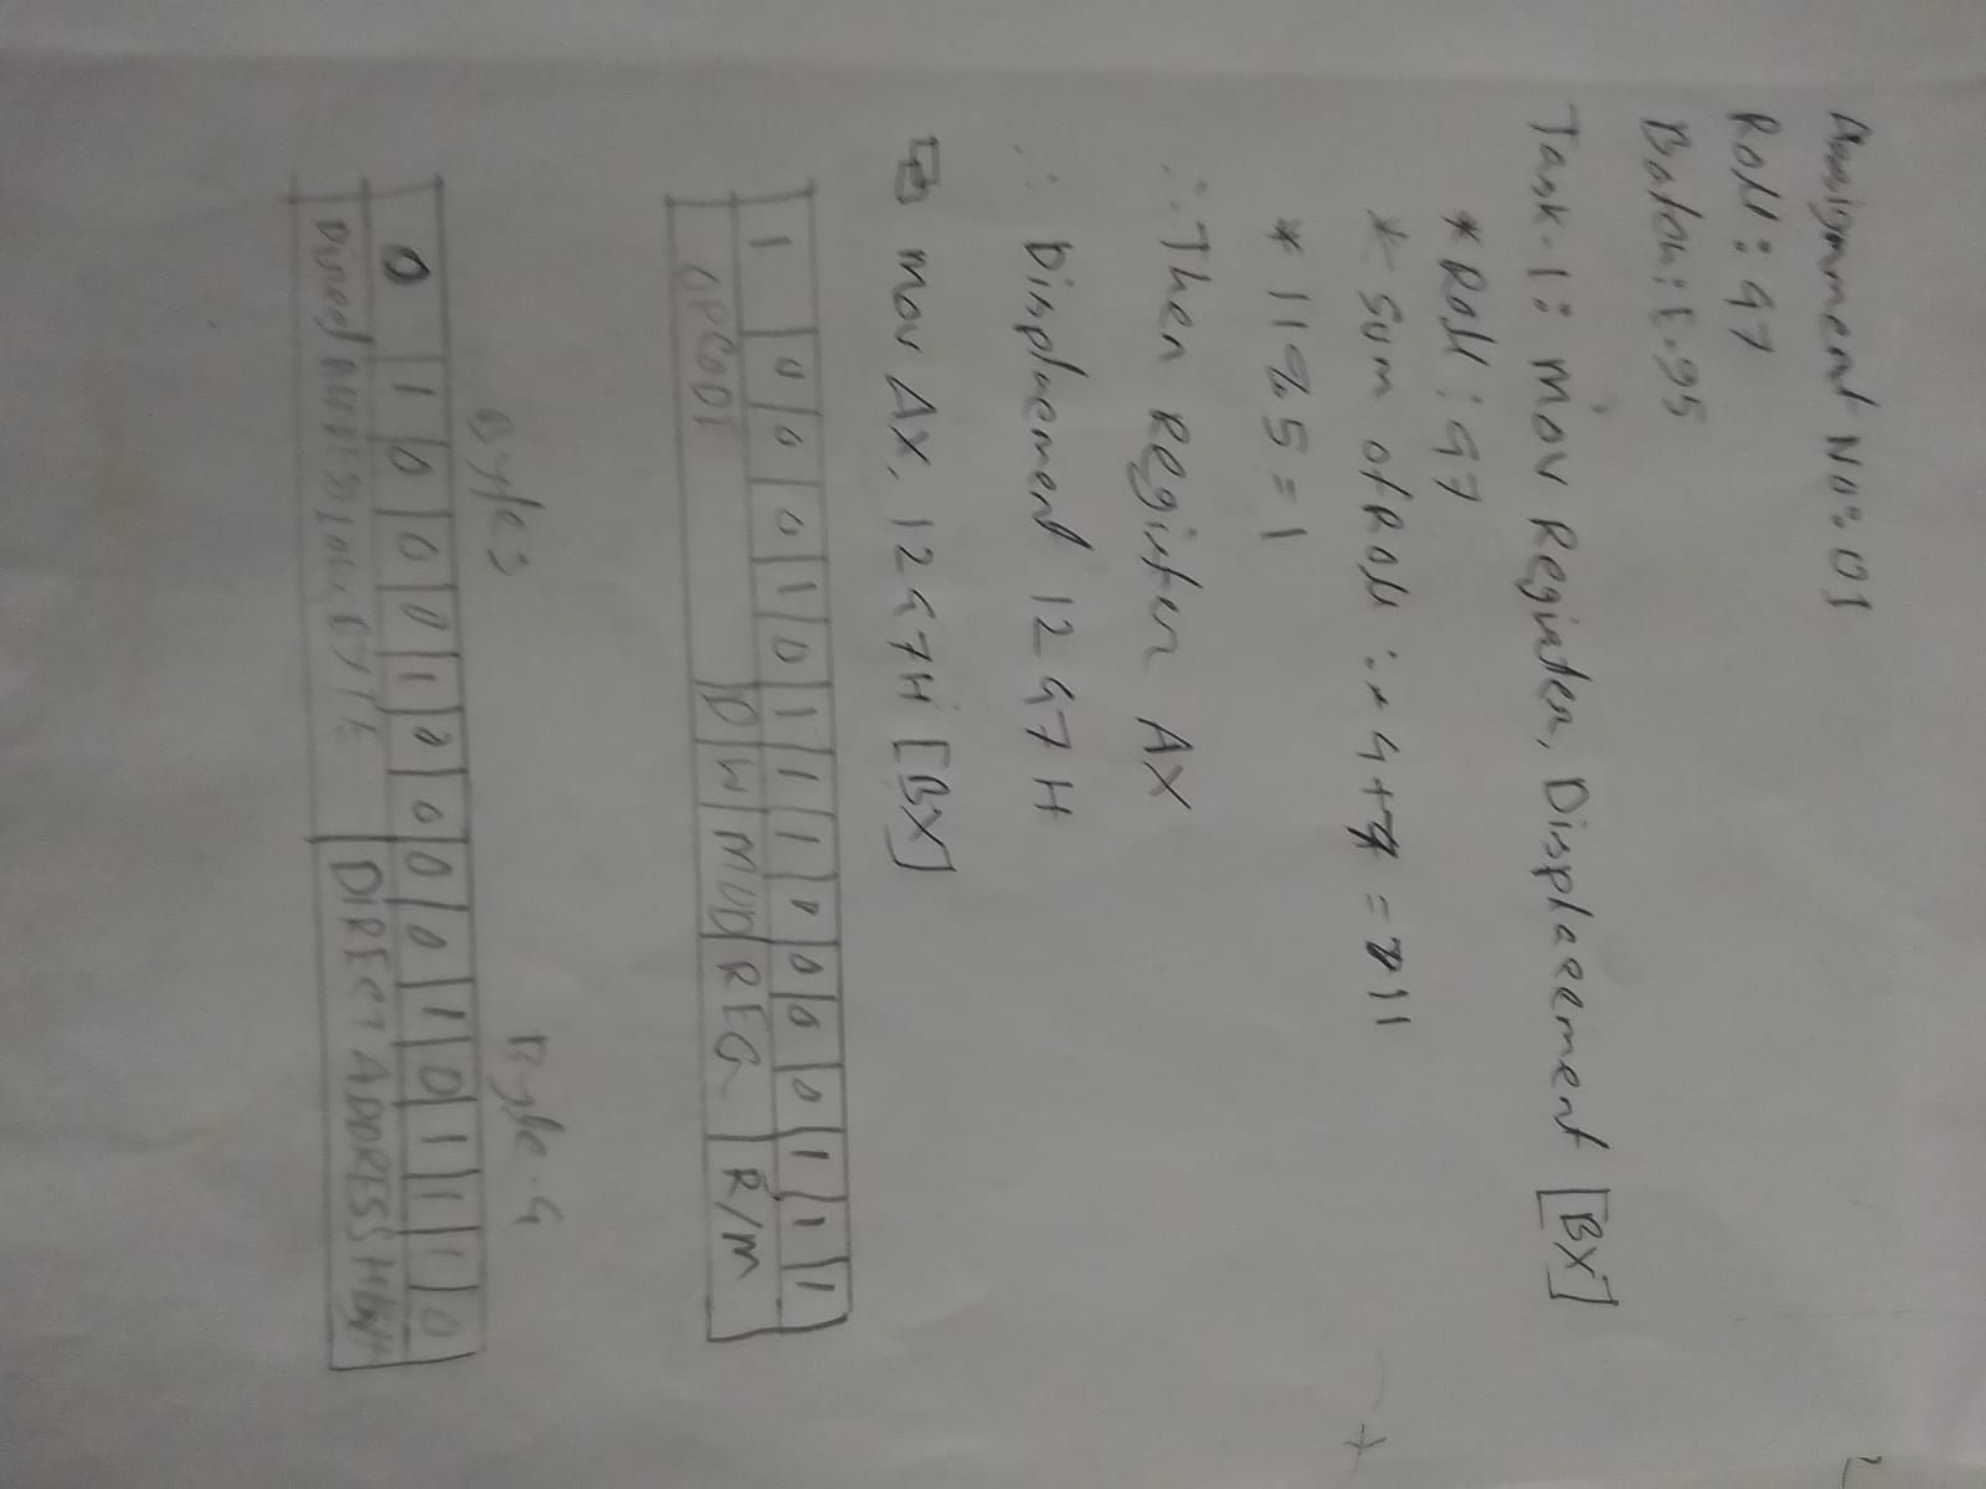 Assignment No: 01
Roll: 47
Batch: E-95
Task-1: Mov Register, Displacement [BX]
* Roll: 47
* Sum of Roll :- 4+7 = 11
* 11%5 = 1
∴ Then Register AX
∴ Displacement 1247H
mov AX, 1247H [BX]
1 0 0 0 1 0 1 1 1 0 0 0 0 1 1 1
OPCODE D W MOD REG R/M
Byte 3 Byte-4
0 1 0 0 0 1 0 0 0 0 1 0 1 1 1 0
DIRECT ADDRESS HIGH